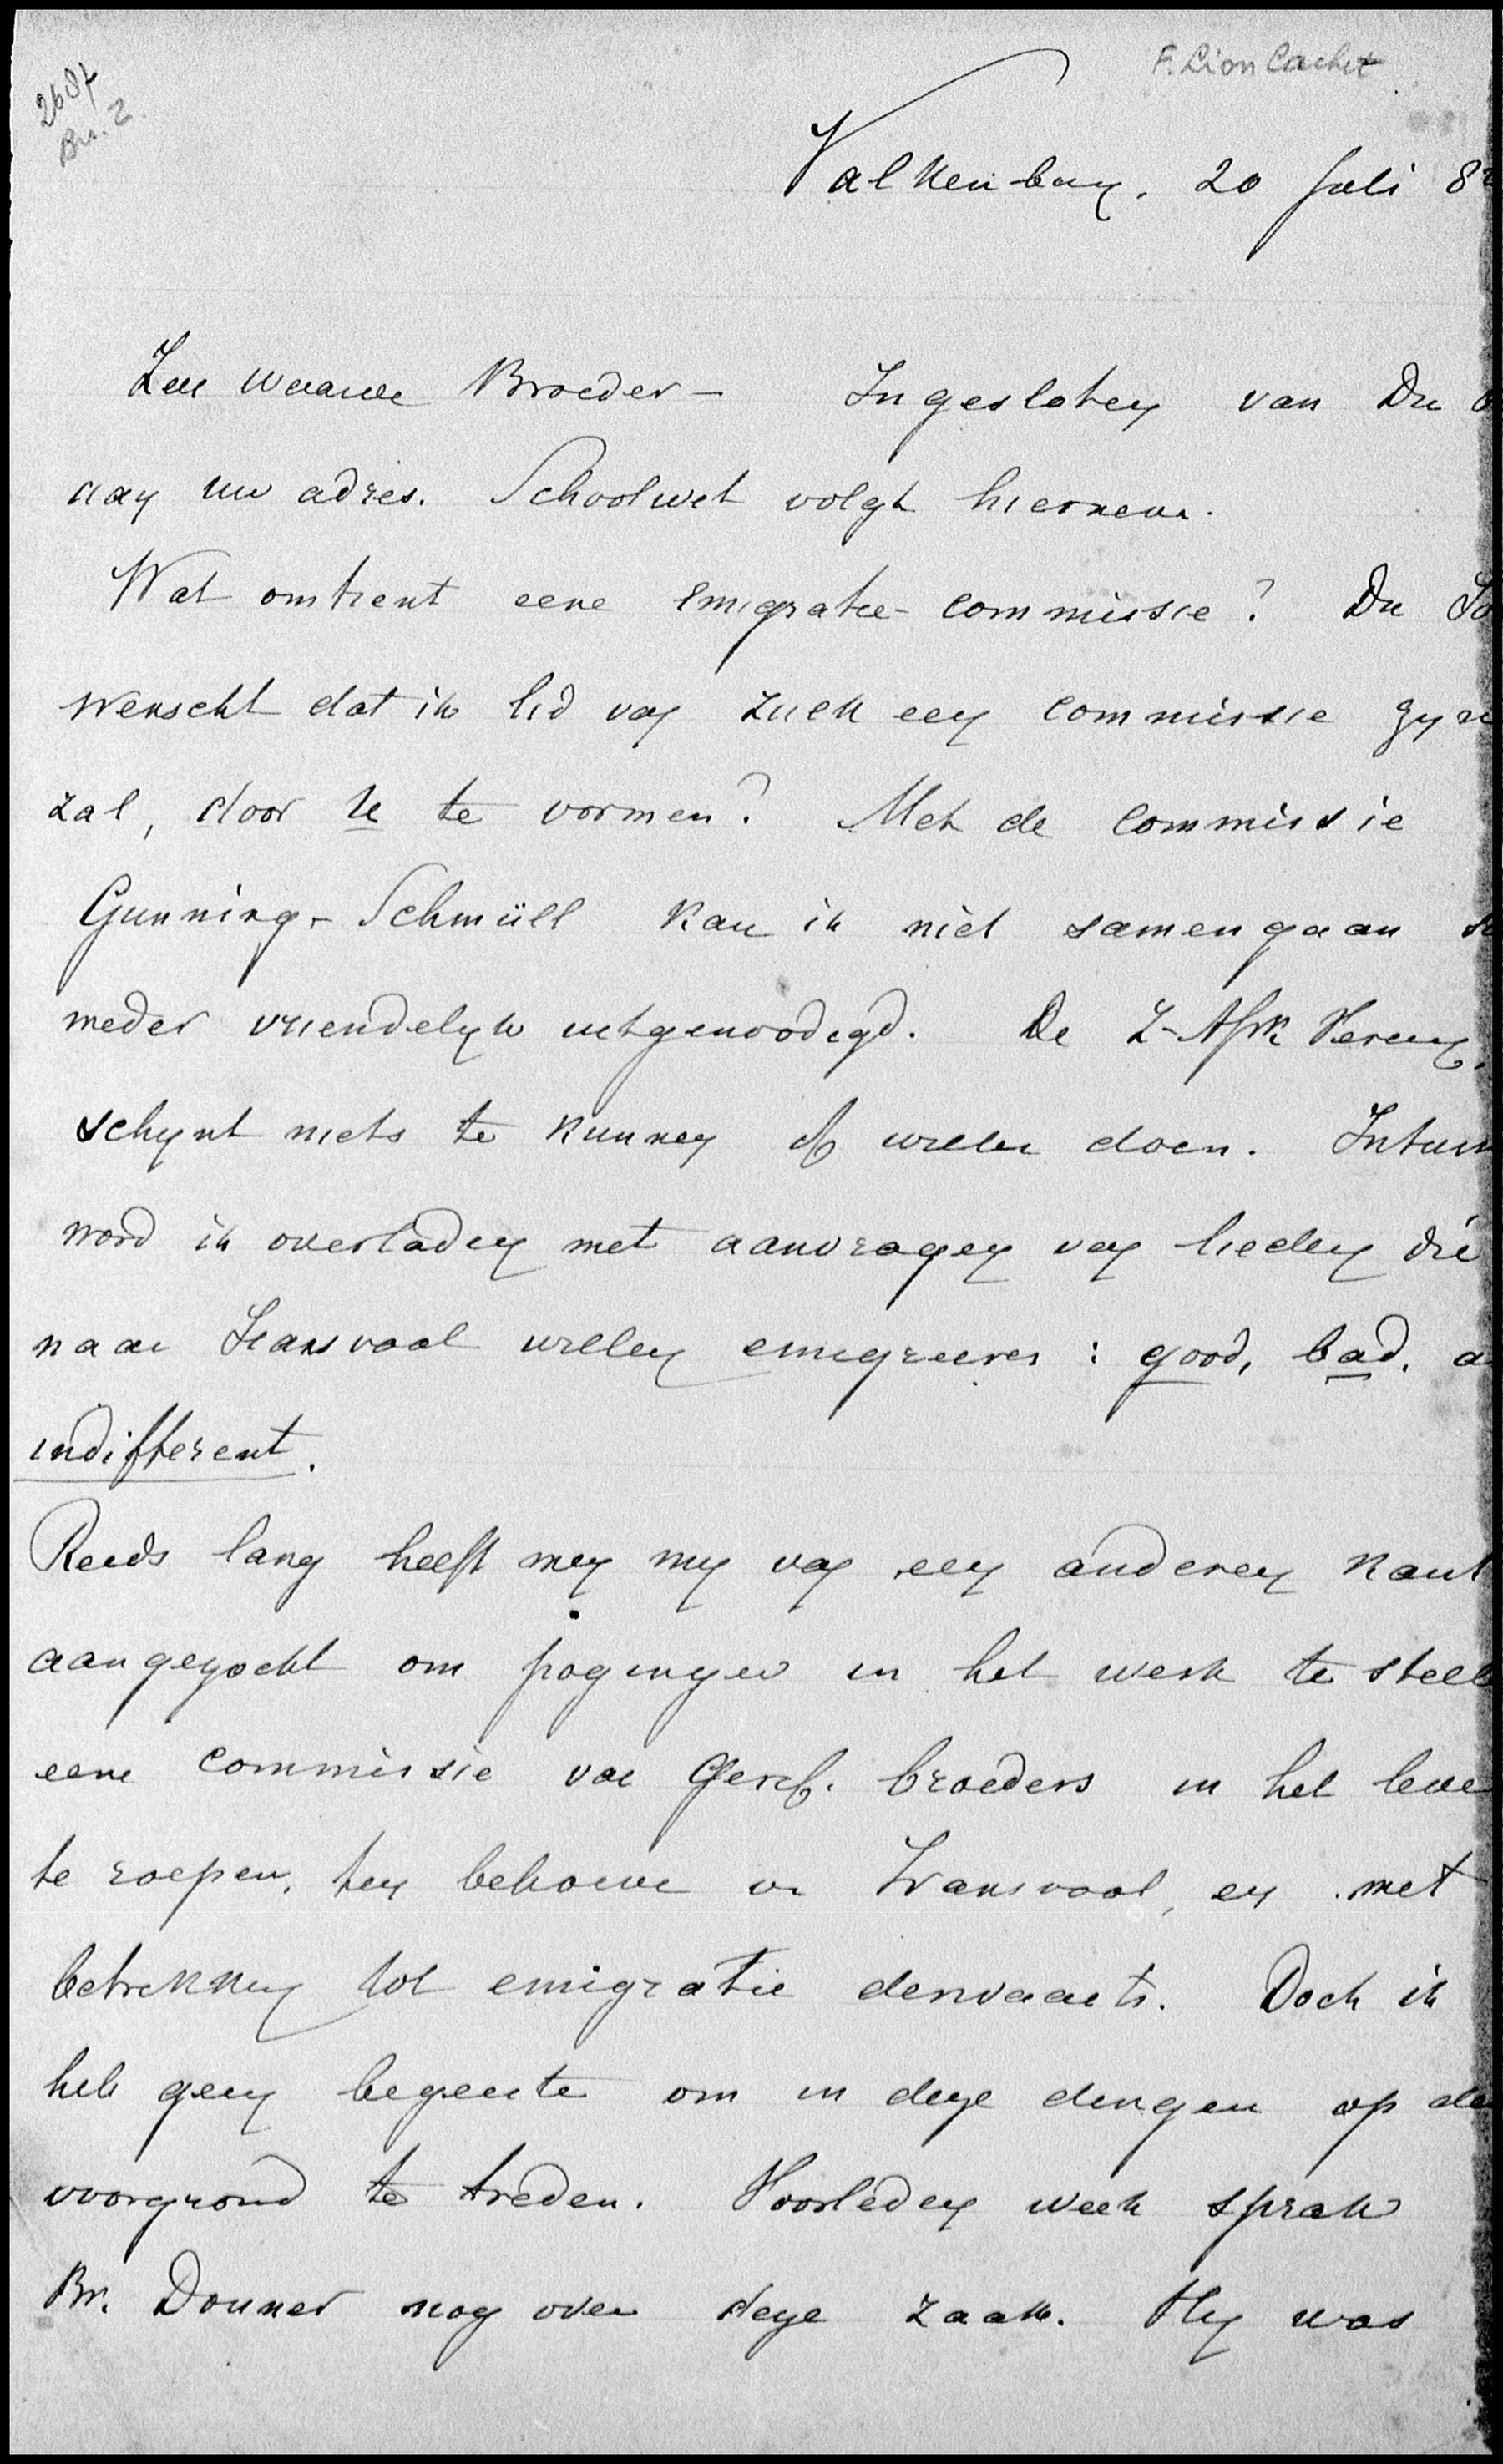 F. Lion Cachet
2687
Br. 2.
Valkenburg, 20 Juli 82
Zeer waarde Broeder - Ingesloten van Du
aan uw adres. Schoolwet volgt hiernevn.
Wat omtrent eene emigratie-commissie? Du
wenscht dat ik lid van zulk een commissie zijn
zal, door u te vormen? Met de commissie
Gunning-Schmüll kan ik niet samengaan
meder vriendelijk uitgenoodigd. De Z-Afrk Vereeng.
schijnt niets te kunnen of willen doen. Intuss
word ik overladen met aanvragen van lieden die
naar Transvaal willen emigreeren: good, bad, a
indifferent.
Reeds lang heeft men mij van een anderen kant
aangezocht om pogingen in het werk te stell
eene commissie van Geref. broeders in het leve
te roepen, ten behoeve vn Transvaal, en met
betrekking tot emigratie derwaarts. Doch ik
heb geen begeerte om in deze dingen op de
voorgrond te treden. Voorleden week sprak
Br. Donner nog over deze zaak. Hij was